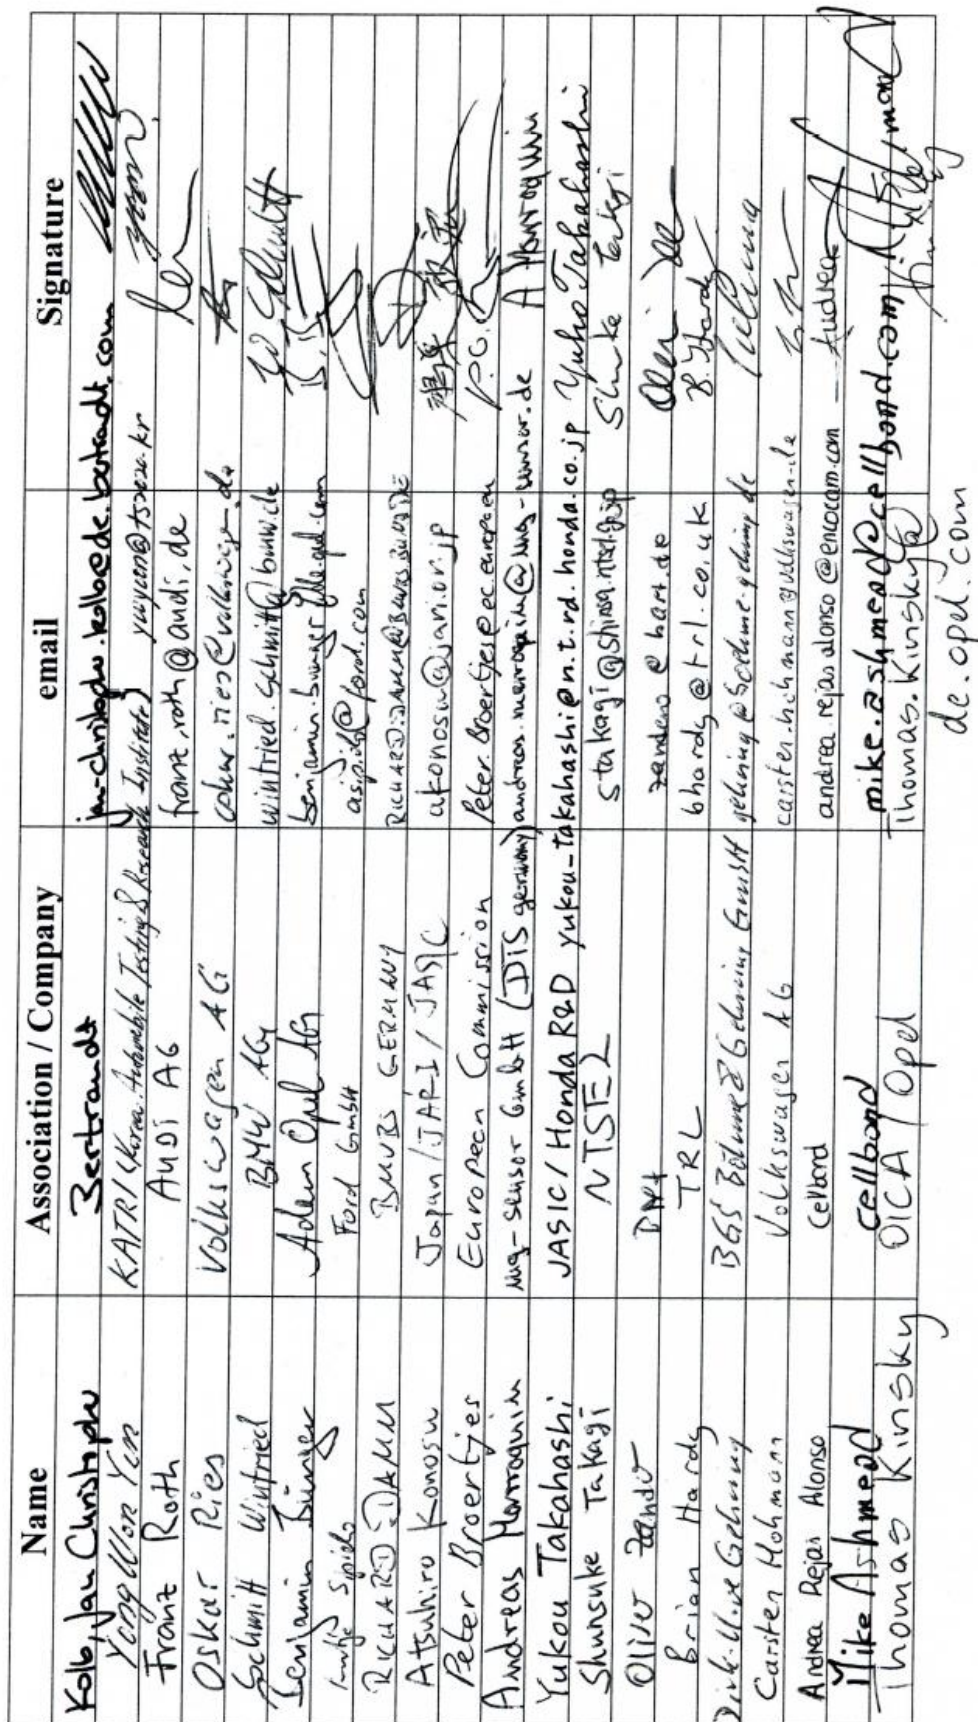 Name Association / Company email Signature
Kolb, Jan Christoph Bertrandt jan-christoph.kolb@de.bertrandt.com
Yong Won Yun KATRI (Korea Automobile Testing & Research Institute) yuyun@ts2020.kr
Franz Roth AUDI AG franz.roth@audi.de
Oskar Ries Volkswagen AG oskar.ries@volkswagen.de
Schmitt Winfried BMW AG winfried.schmitt@bmw.de
Benjamin Bünger Adam Opel AG benjamin.buenger@de.opel.com
Ford GmbH @ford.com
RICHARD DAMM BMVBS GERMANY RICHARD.DAMM@BMVBS.BUND.DE
Atsuhiro Konosu Japan / JARI / JASIC akonosu@jari.or.jp
Peter Broertjes European Commission Peter.Broertjes@ec.europa.eu P.G.
Andreas Marroquin mg-sensor GmbH (DTS germany) andreas.marroquin@mg-sensor.de A Marroquin
Yukou Takahashi JASIC/Honda R&D yukou-takahashi@n.t.rd.honda.co.jp Yuko Takahashi
Shunsuke Takagi NTSEL stakagi@shinsa.ntsel.go.jp Shunsuke Takagi
Oliver Zander BASt zander@bast.de
Brian Hardy TRL bhardy@trl.co.uk B. Hardy
Dirk-Uwe Gehring BGS Böhme & Gehring GmbH gehring@boehme-gehring.de
Carsten Hohmann Volkswagen AG carsten.hohmann@volkswagen.de
Andrea Rejas Alonso Cellbond andrea.rejas alonso@encocam.com Andrea
Mike Ashmead cellbond mike.ashmead@cellbond.com
Thomas Kinsky OICA / Opel Thomas.Kinsky@
de.opel.com